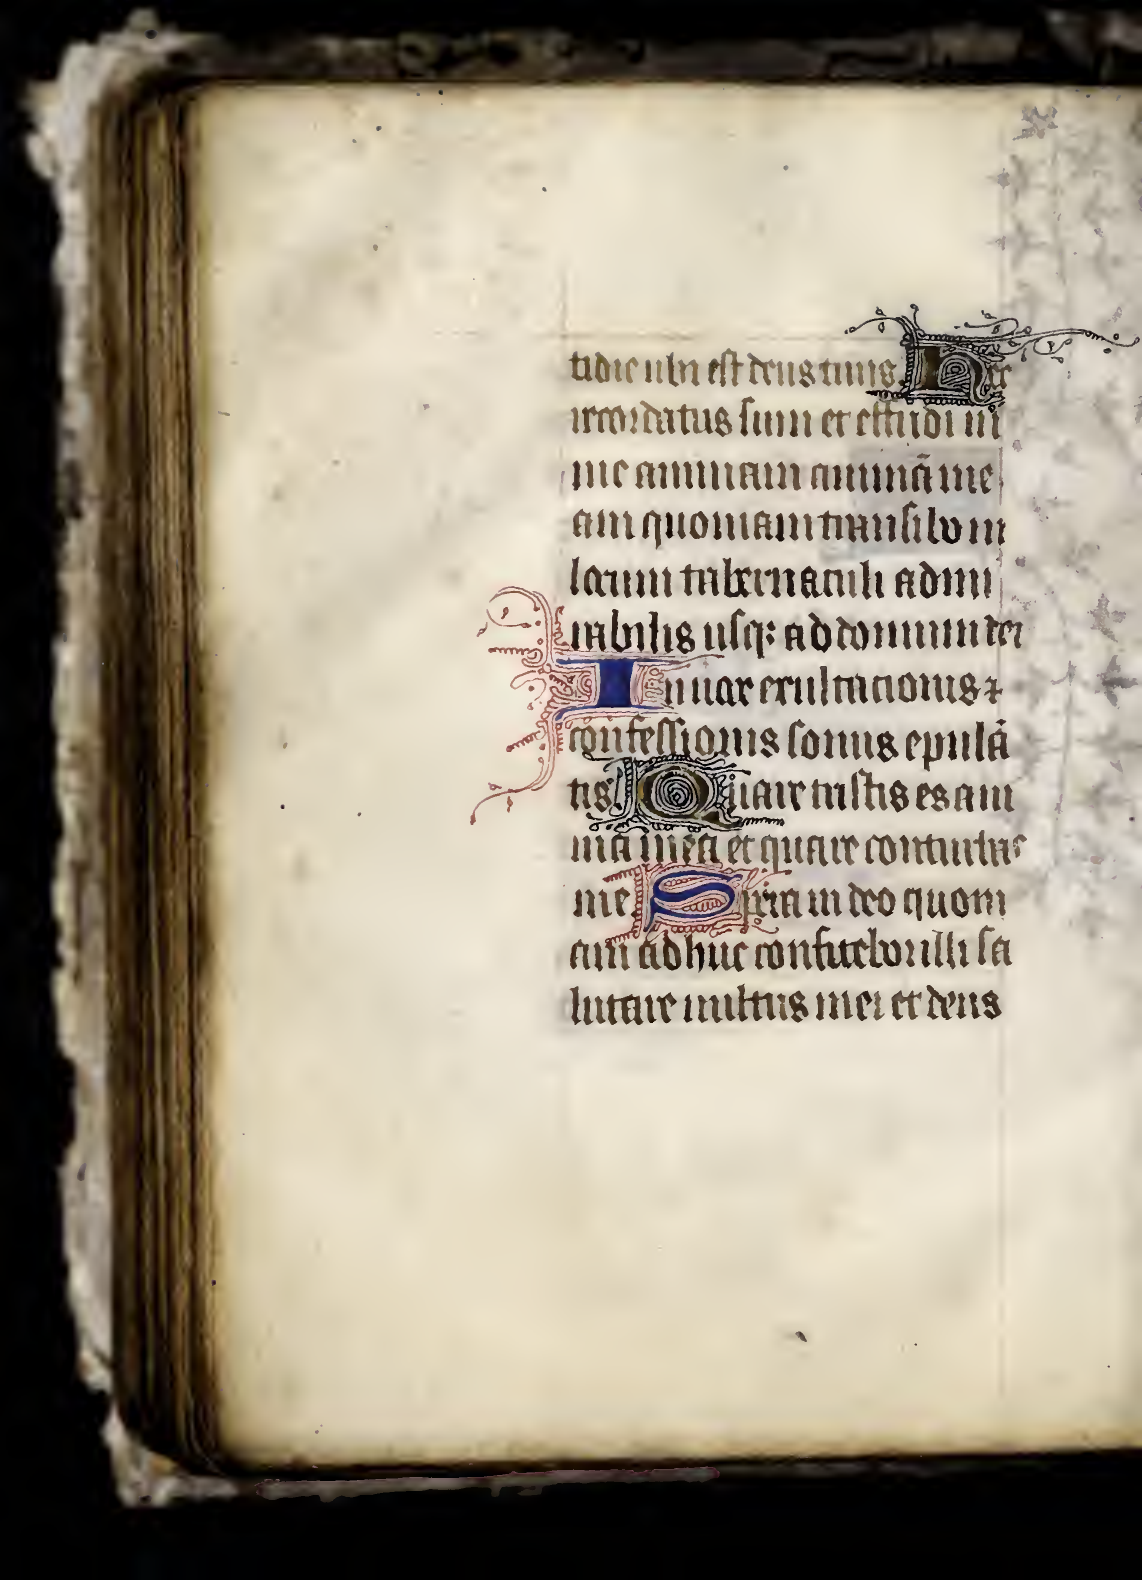 tidie ubi est deus tuus Hec
recordatus sum et effudi in
me animam animā me
am quoniam transibo in
locum tabernaculi admi
rabilis usqꝫ ad domum dei
In uoce exultationis ⁊
confessionis sonus epulā
tis Quare tristis es ani
ma mea et quare conturbas
me Spera in deo quoni
am adhuc confitebor illi sa
lutare uultus mei et deus